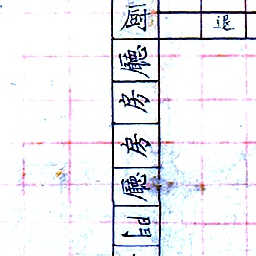 厨
退
廳
房
房
廳